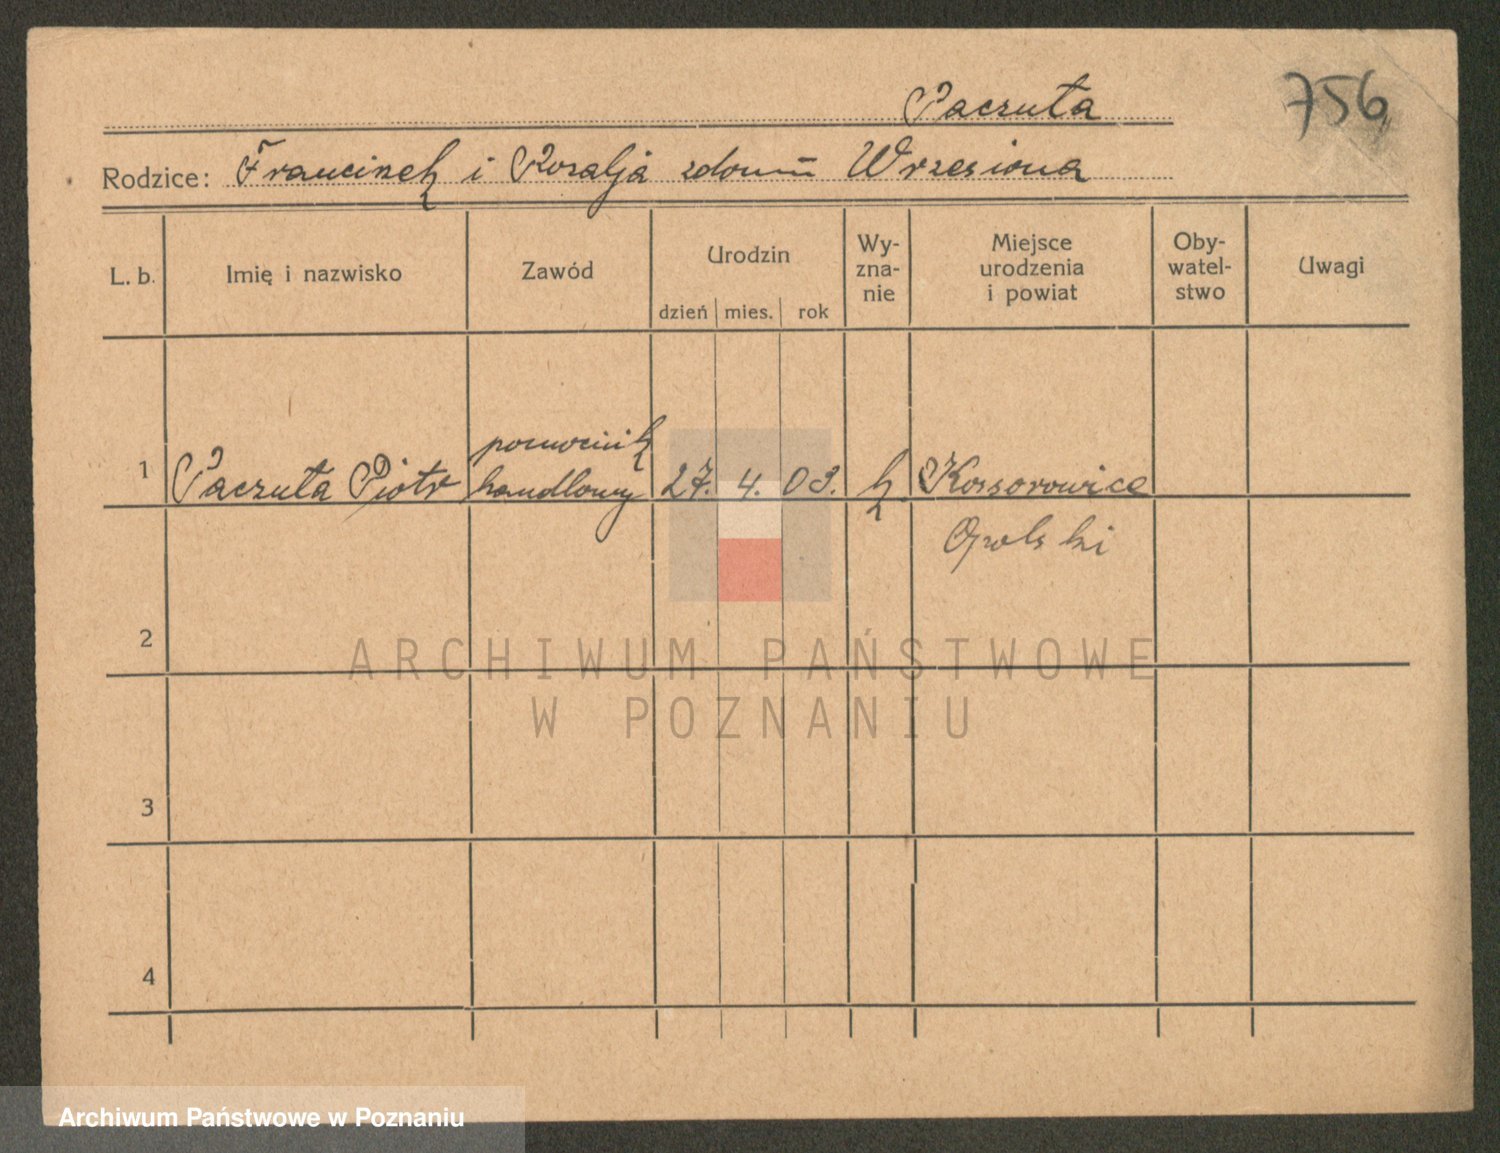 Paczuta
756
Rodzice: Franciszek i Rozalja z domu Wrzesiona
L. b.
Imię i nazwisko
Zawód
Urodzin
dzień mies. rok
Wy-
zna-
nie
Miejsce
urodzenia
i powiat
Oby-
watel-
stwo
Uwagi
pomocnik
1 Paczuta Piotr handlowy 27. 4. 03. k Kossorowice
Opolski
2
3
4
ARCHIWUM PAŃSTWOWE
W POZNANIU
Archiwum Państwowe w Poznaniu